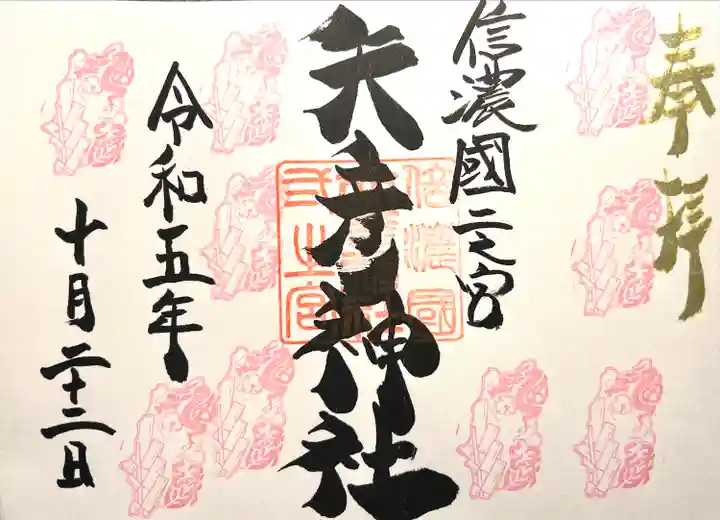 奉拝
信濃國二之宮
矢彦神社
信濃國
弐之宮
令和五年
十月二十二日